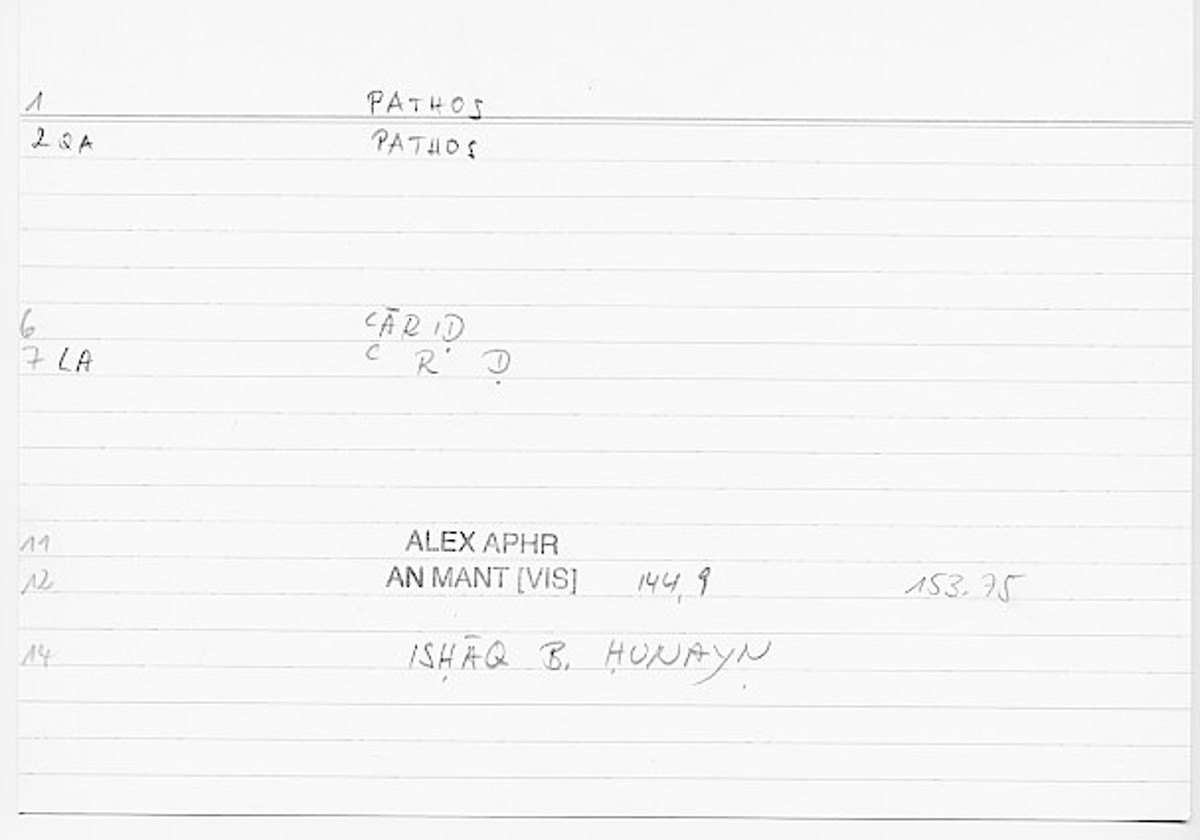 1 PATHOS
2 QA PATHOS
6 ʿĀRIḌ
7 LA ʿ R Ḍ
11 ALEX APHR
12 AN MANT [VIS] 144,9 153.75
14 ISḤĀQ B. ḤUNAYN